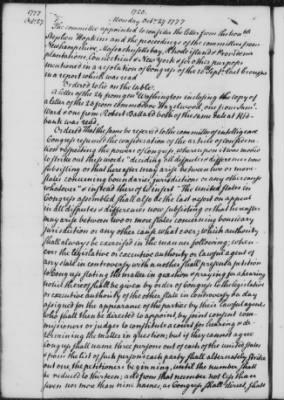 1777
Oct: 27
1920.
Monday Octr 27 1777
The committee appointed to consider the letter from the honble
Stephen Hopkins and the proceedings of the committee from
Newhampshire, Massachusetts bay, Rhode island & Providence
plantations, Connecticut & New York & for this purpose
mentioned in a resolution of Congress of the 10 Septr last brought
in a report which was read
Ordered to lie on the table.
A letter of the 24 from gen Washington inclosing the copy of
a letter of the 23 from commodore Hazelwood, one from
and one from Robert Ballard both of the same date at Red-
bank was read.
Ordered That the same be referred to the committee of intelligence
Congress resumed the consideration of the article of confedera-
tion respecting the powers of Congress, whereupon it was moved
to strike out these words "deciding all disputes & differences now
subsisting or that hereafter may arise between two or more
states concerning boundaries, jurisdiction or any other cause
whatever" & instead thereof to insert "The united states in
Congress assembled shall also be the last resort on appeal
in all disputes & differences now subsisting or that hereafter
may arise between two or more states concerning boundary
jurisdiction or any other cause whatever, which authority
shall always be exercised in the manner following; when-
ever the legislative or executive authority or lawful agent of
any state in controversy with another shall present a petition
to Congress stating the matter in question & praying for a hearing
notice thereof shall be given by order of Congress to the legislative
or executive authority of the other state in controversy & a day
assigned for the appearance of the parties by their lawful agents,
who shall then be directed to appoint by joint consent com-
missioners or judges to constitute a court for hearing & de-
termining the matter in question; but if they cannot agree
Congress shall name three persons out of each of the united states
& from the list of such persons each party shall alternately strike
out one, the petitioners beginning, until the number shall
be reduced to thirteen; and from that number not less than
seven nor more than nine names as Congress shall direct shall